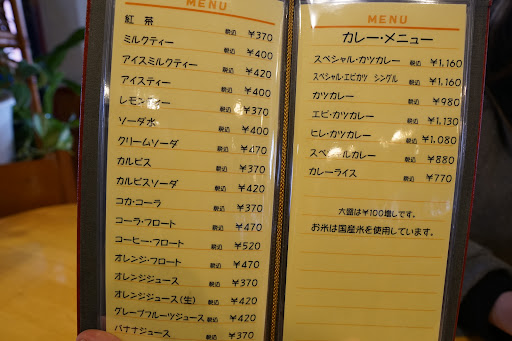 MENU
紅 茶 税込 ¥370
ミルクティー 税込 ¥400
アイスミルクティー 税込 ¥420
アイスティー 税込 ¥400
レモンティー 税込 ¥370
ソーダ水 税込 ¥400
クリームソーダ 税込 ¥470
カルピス 税込 ¥370
カルピスソーダ 税込 ¥420
コカ・コーラ 税込 ¥370
コーラ・フロート 税込 ¥470
コーヒー・フロート 税込 ¥520
オレンジ・フロート 税込 ¥470
オレンジジュース 税込 ¥370
オレンジジュース(生) 税込 ¥420
グレープフルーツジュース 税込 ¥420
バナナジュース 税込 ¥370
MENU
カレー・メニュー
スペシャル・カツカレー 税込 ¥1,160
スペシャル・エビカツ シングル 税込 ¥1,160
カツカレー 税込 ¥980
エビ・カツカレー 税込 ¥1,130
ヒレ・カツカレー 税込 ¥1,080
スペシャルカレー 税込 ¥880
カレーライス 税込 ¥770
大盛は¥100増しです。
お米は国産米を使用しています。